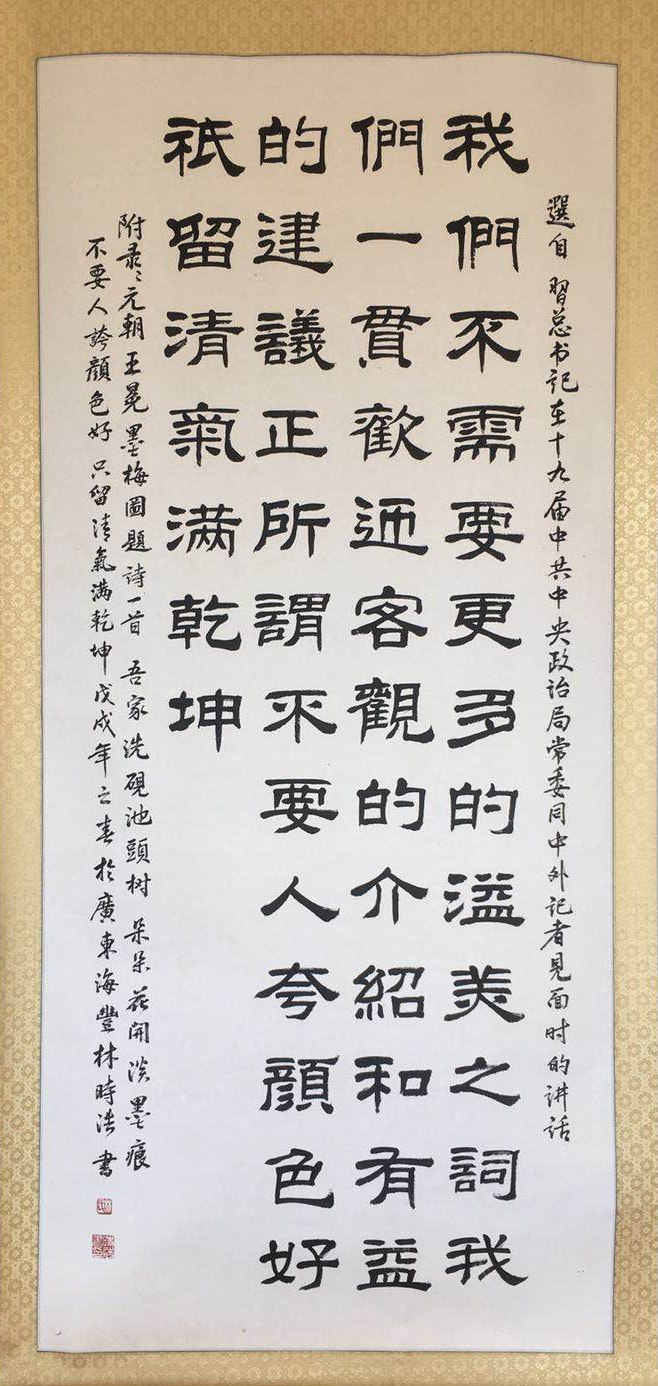 選自 習总书記在十九届中共中央政治局常委同中外記者見面时的讲話
我們不需要更多的溢美之詞我
們一貫歡迊客觀的介紹和有益
的建議正所謂不要人夸顔色好
祇留清氣满乾坤
附录:元朝王冕墨梅圖題詩一首 吾家洗硯池頭树 朵朵花開淡墨痕
不要人誇顔色好 只留清氣满乾坤 戊戌年之春於廣東海豐林時浩書